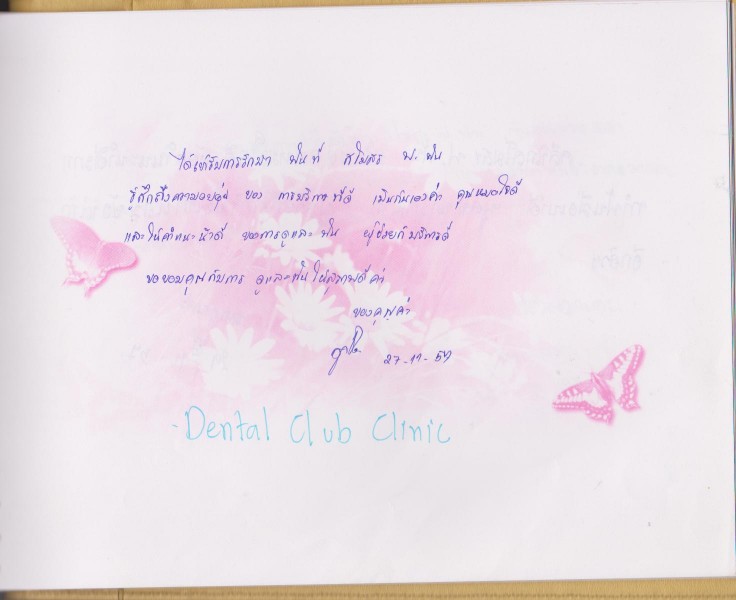 ได้เข้ารับการรักษา ฟันที่ สโมสร ฟ.ฟัน
รู้สึกถึงความอบอุ่น ของ การบริการที่ดี เป็นกันเองค่ะ คุณหมอใจดี
และให้คำแนะนำดี ของการดูแล ฟัน ผู้ช่วยก็บริการดี
ขอขอบคุณกับการ ดูแลฟันให้สุขภาพดีค่ะ
ขอบคุณค่ะ
27-11-57
- Dental Club Clinic